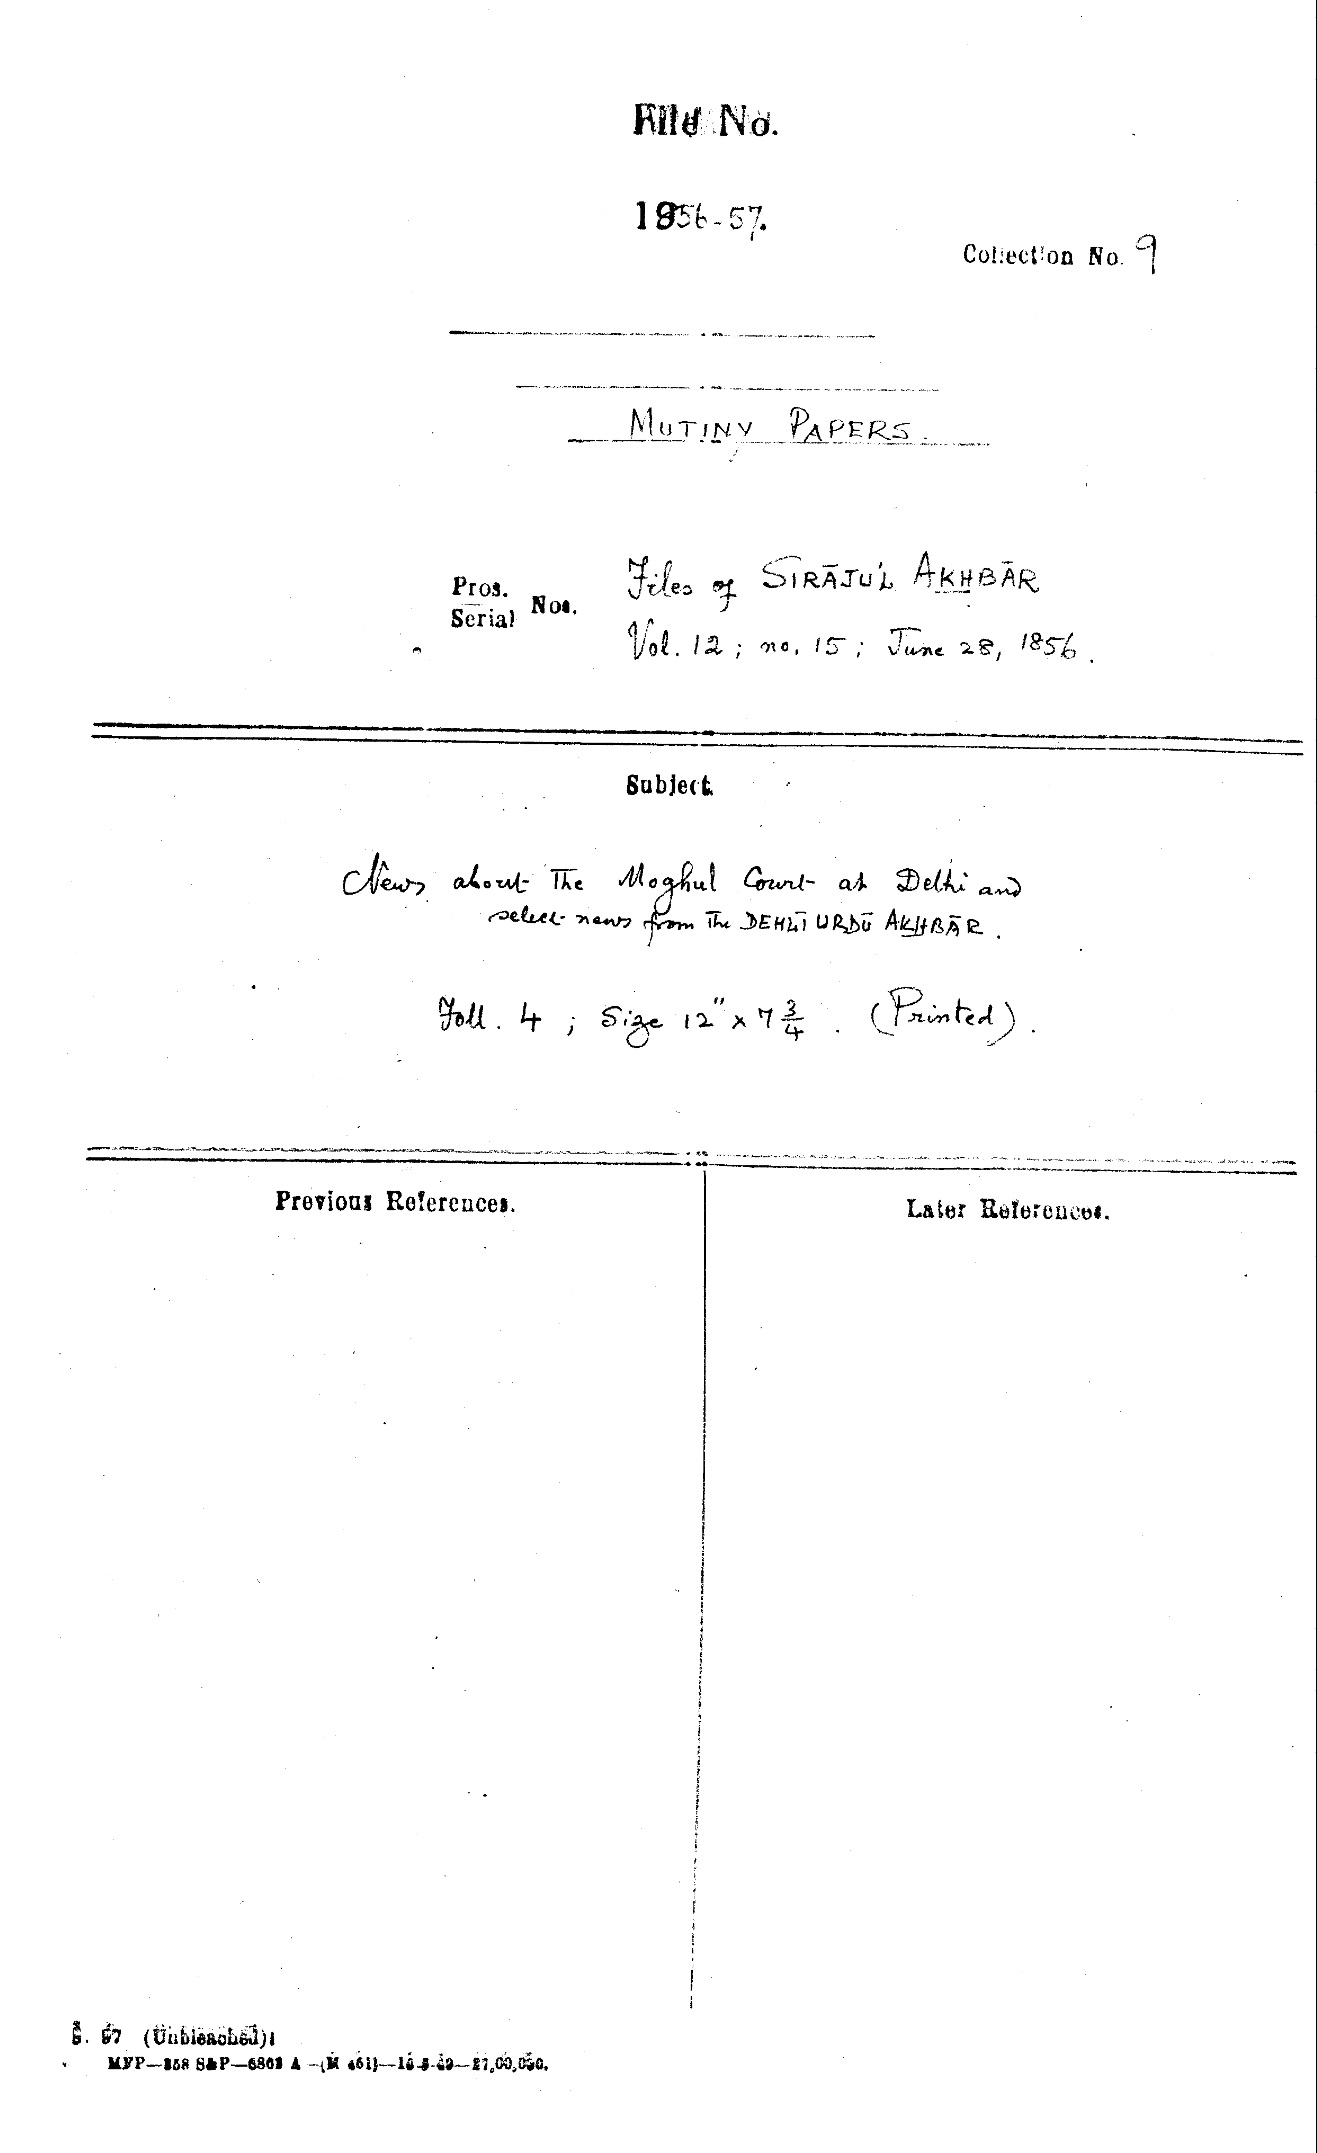 File No.
1856-57.
Collection No. 9
MUTINY PAPERS.
Pros.
Serial Nos.
Files of SIRĀJU'L AKHBĀR
Vol. 12 ; no. 15 ; June 28, 1856.
Subject.
News about The Moghul Court at Delhi and
select news from The DEHLĪ URDŪ AKHBĀR.
Foll. 4 ; Size 12" x 7 3/4 . (Printed).
Previous References.
Later References.
S. 67 (Unbleached)